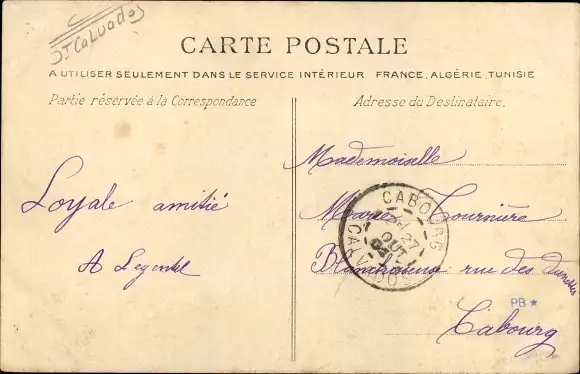 Dt Calvados
CARTE POSTALE
A UTILISER SEULEMENT DANS LE SERVICE INTÉRIEUR FRANCE, ALGÉRIE, TUNISIE
Partie réservée à la Correspondance
Adresse du Destinataire.
Loyale amitié
A Legentil
Mademoiselle
Marie Tournière
Blanchisseuse rue des dunettes
Cabourg
CABOURG
27
OUT
04
CALVADOS
PB ★